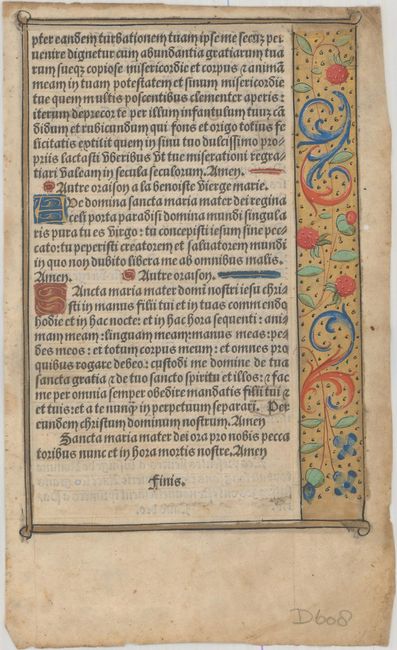 pter eandem turbationem tuam ipse me secuȝ per
uenire dignetur cum abundantia gratiarum tua
rum sueqȝ copiose misericordie et corpus ⁊ animā
meam in tuam potestatem et sinum misericordie
tue quem multis poscentibus clementer aperis:
iterum deprecor te per illum infantulum tuuȝ cā
didum et rubicundum qui fons et origo totius fe
licitatis extitit quem in sinu tuo dulcissimo pro⸗
priis lactasti vberibus Vt tue miserationi regra⸗
tiari valeam in secula seculorum. Amen.
Autre oraison a la benoiste vierge marie.
De domina sancta maria mater dei regina
celi porta paradisi domina mundi singula
ris pura tu es virgo: tu concepisti iesum sine pec
cato: tu peperisti creatorem et saluatorem mundi
in quo non dubito libera me ab omnibus malis.
Amen. Autre oraison.
SAncta maria mater domī nostri iesu chri⸗
sti in manus filii tui et in tuas commendo
hodie et in hac nocte: et in hac hora sequenti: ani⸗
mam meam: linguam meam: manus meas: pe⸗
des meos: et totum corpus meum: et omnes pro
quibus rogare debeo: custodi me domine de tua
sancta gratia ⁊ de tuo sancto spiritu et illos: ⁊ fac
me per omnia semper obedire mandatis filii tui ⁊
et tuis: et a te nunqȝ in perpetuum separari. Per
eundem christum dominum nostrum. Amen
Sancta maria mater dei ora pro nobis pecca
toribus nunc et in hora mortis nostre. Amen
Finis.
D608